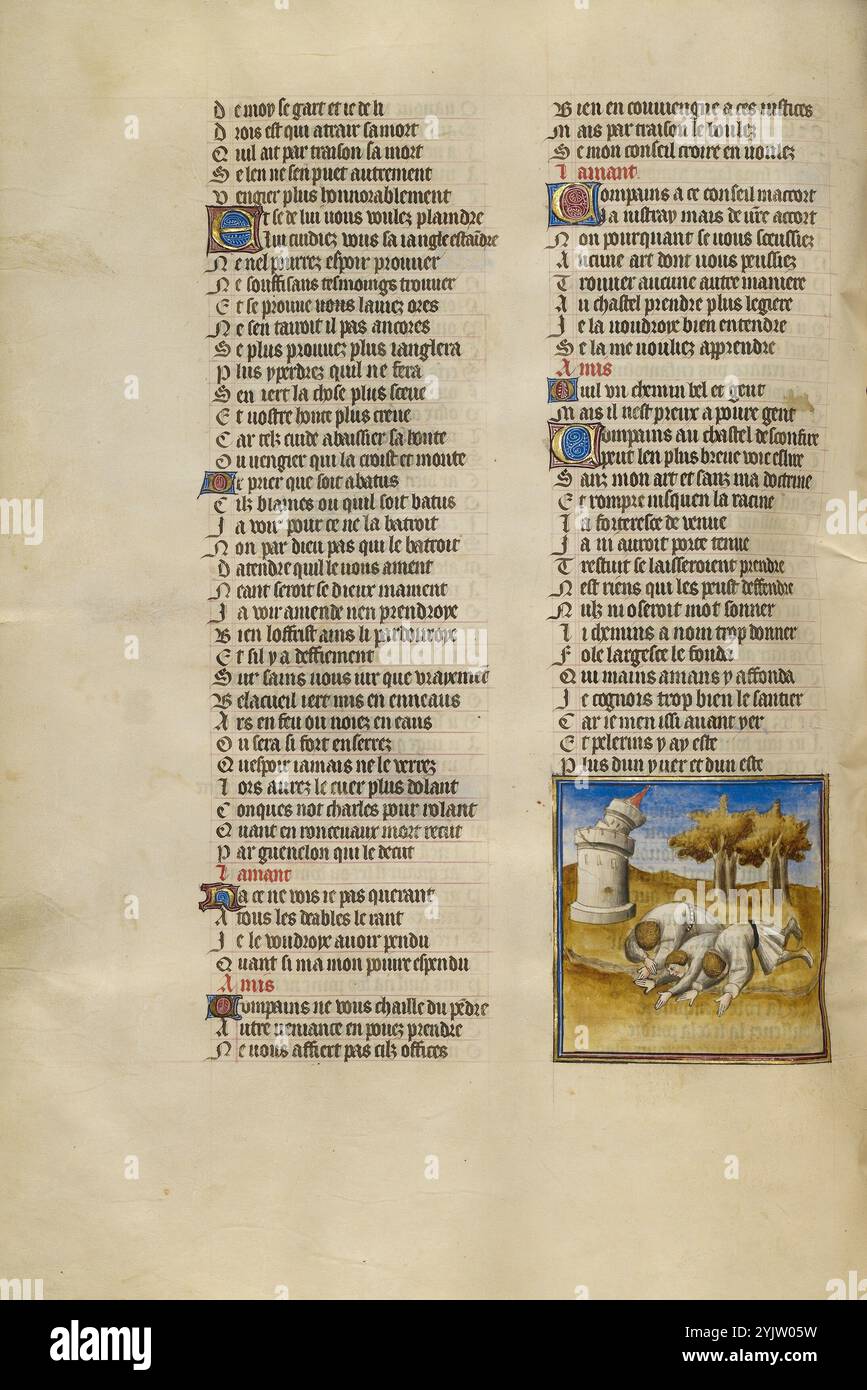 De moy se gart et ie de li
Drois est qui atrait sa mort
Quil ait par traison sa mort
Se len ne sen puet autrement
Vengier plus honnorablement
Et se de lui vous voulez plaindre
Cuidiez vous sa iangle estaindre
Ne nel pourrez espoir prouuer
Ne souffisans tesmoings trouuer
Et se prouue vous lauiez ores
Ne sen tairoit il pas ancores
Se plus prouuez plus ianglera
Plus y perdrez quil ne fera
Sen iert la chose plus sceue
Et vostre honte plus creue
Car telz cuide abaissier sa honte
Ou vengier qui la croist et monte
De prier que soit abatus
Cilz blames ou quil soit batus
Ja voir pour ce ne la batroit
Non par dieu pas qui le batroit
Datendre quil le vous ament
Neant seroit se dieux mament
Ja voir amende nen prendroye
Bien loffrist ains li pardonroye
Et sil y a deffiement
Sur sains vous iur que vraiement
Belacueil iert mis en enneaus
Ars en feu ou noiez en eaus
Ou sera si fort enserrez
Quespoir iamais ne le verrez
Lors aurez le cuer plus dolant
Conques not charles pour rolant
Quant en ronceuaux mort recut
Par guenelon qui le decut
Lamant
Ha ce ne vois ie pas querant
A tous les deables le rant
Je le voudroye auoir pendu
Quant si ma mon poiure espendu
Amis
Compains ne vous chaille du pendre
Autre veniance en pouez prendre
Ne vous affiert pas cilz offices
Bien en conuienque a ces iustices
Mais par traison le boulez
Se mon conseil croire en voulez
Lamant
Compains a ce conseil maccort
Ja nistray mais de vre accort
Non pourquant se vous sceussiez
Aucune art dont vous peussiez
Trouuer aucune autre maniere
Au chastel prendre plus legiere
Je la voudroye bien entendre
Se la me vouliez apprendre
Amis
Ouil vn chemin bel et gent
Mais il nest preux a poure gent
Compains au chastel desconfire
Peut len plus breue voie eslire
Sanz mon art et sanz ma doctrine
Et rompre iusquen la racine
La forteresce de venue
Ja ni auroit porte tenue
Trestuit se laisseroient prendre
Nest riens qui les peust deffendre
Nulz ni oseroit mot sonner
Li chemins a nom trop donner
Fole largesce le fonda
Qui mains amans y affonda
Je cognois trop bien le santier
Car ie men issi auant yer
Et pelerins y ay este
Plus dun yuer et dun este
alamy
Image ID: 2YJW05W
www.alamy.com